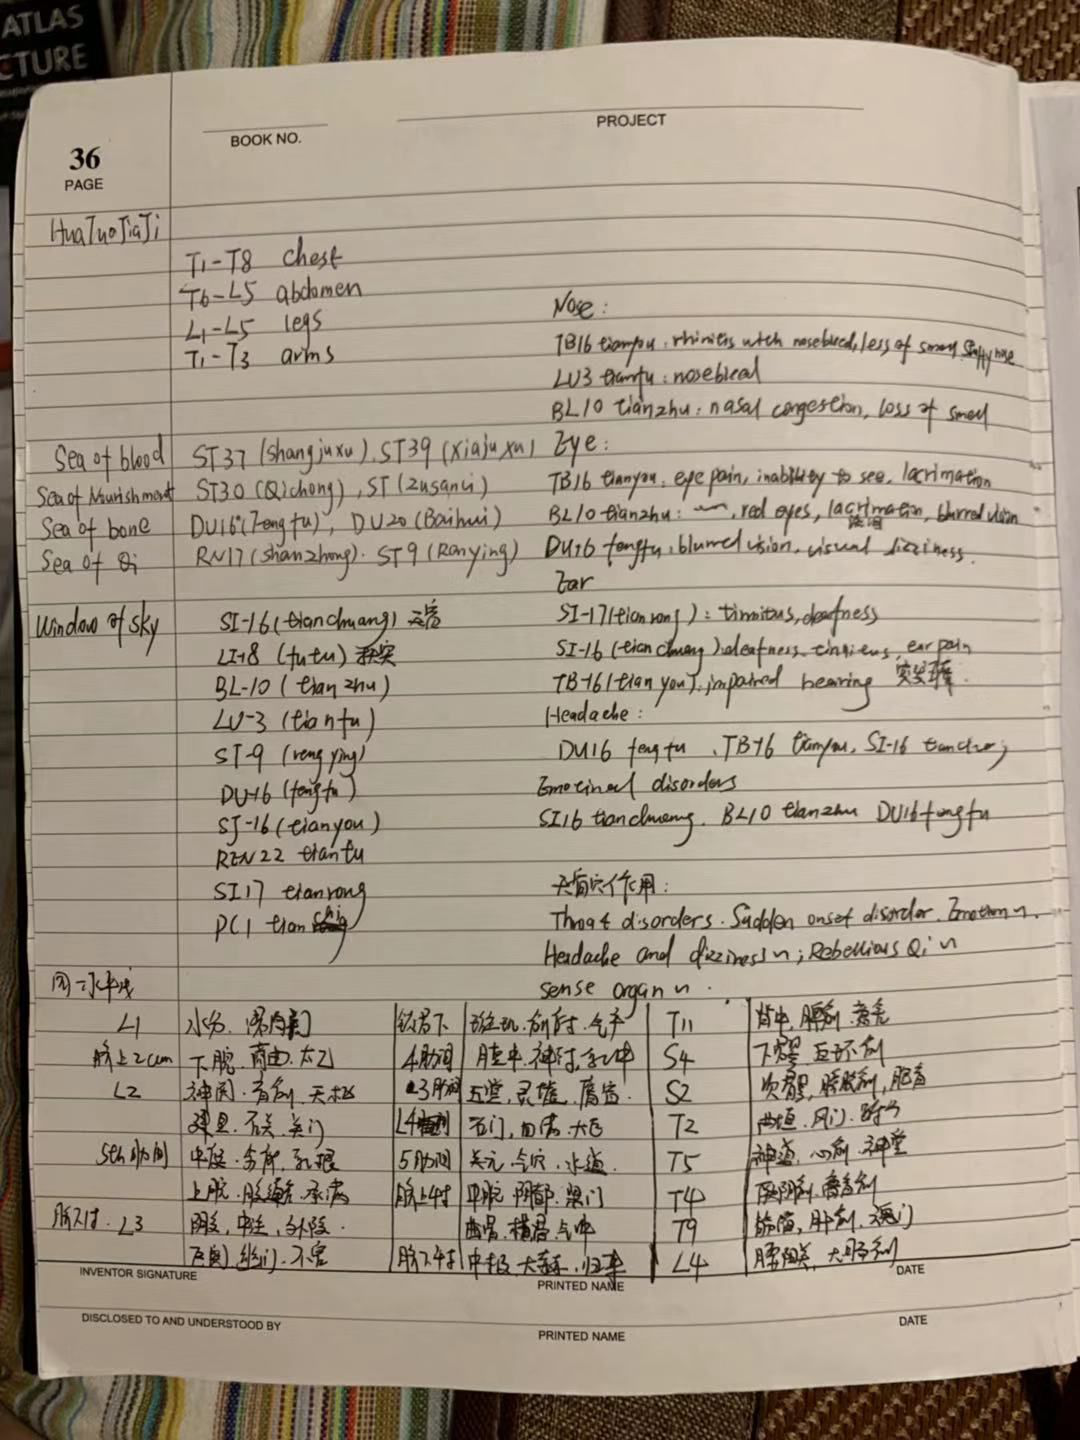 ATLAS
CTURE
36
PAGE
BOOK NO.
PROJECT
HuaTuoJiaJi
T1-T8 chest
T6-L5 abdomen
L1-L5 legs
T1-T3 arms
Nose:
TB16 tianyou: rhinitis with nosebleed, less of smell
LU3 tianfu: nosebleed
BL10 tianzhu: nasal congestion, loss of smell
Sea of blood ST37 (shangjuxu), ST39 (xiajuxu)
Sea of Nourishment ST30 (Qichong), ST (zusanli)
Sea of bone DU16 (Fengfu), DU20 (Baihui)
Sea of Qi RN17 (shanzhong). ST9 (Renying)
Eye:
TB16 tianyou, eye pain, inability to see, lacrimation
BL10 tianzhu: 〰, red eyes, lacrimation, blurred vision
DU16 fengfu, blurred vision, visual dizziness.
Ear
Window of sky
SI-16 (tianchuang) 天窗
LI-18 (futu) 扶突
BL-10 (tianzhu)
LU-3 (tianfu)
ST-9 (rengying)
DU-16 (fengfu)
SJ-16 (tianyou)
REN22 tiantu
SI17 tianrong
PC1 tianchi
SI-17 (tianrong): tinnitus, deafness
SI-16 (tianchuang), deafness, tinnitus, ear pain
TB-16 (tianyou), impaired hearing 突发耳聋.
Headache:
DU16 fengfu, TB-16 tianyou, SI-16
Emotinal disorders
SI16 tianchuang, BL10 tianzhu DU16 fengfu
天窗穴作用:
Throat disorders. Sudden onset disorder. Emotion
Headache and dizziness; Rebellious Qi
sense organ
同一水平线
L1 水分, T11 脊中,
脐上2cun 下脘, 商曲, 太乙 4肋间 膻中, 神封, 乳中 S4 下髎
L2 神阙, 肓俞, 天枢 3肋间 玉堂, 灵墟, 膺窗. S2 次髎, 膀胱俞, 胞肓
建里, 石关, 关门 石门, 四满, 大巨 T2 风门
5th肋间 中庭, 乳根 5肋间 关元, 气穴, 水道. T5 神道, 心俞, 神堂
上脘, 腹通谷, 承满 脐上4寸 中脘, 阴都, 梁门 T4 厥阴俞, 膏肓俞
L3 阴交, 中注, 外陵. 曲骨, 横骨, 气冲 T9 筋缩, 肝俞, 魂门
脐下4寸 中极, 大赫, 归来 L4 腰阳关, 大肠俞
INVENTOR SIGNATURE
PRINTED NAME
DATE
DISCLOSED TO AND UNDERSTOOD BY
PRINTED NAME
DATE